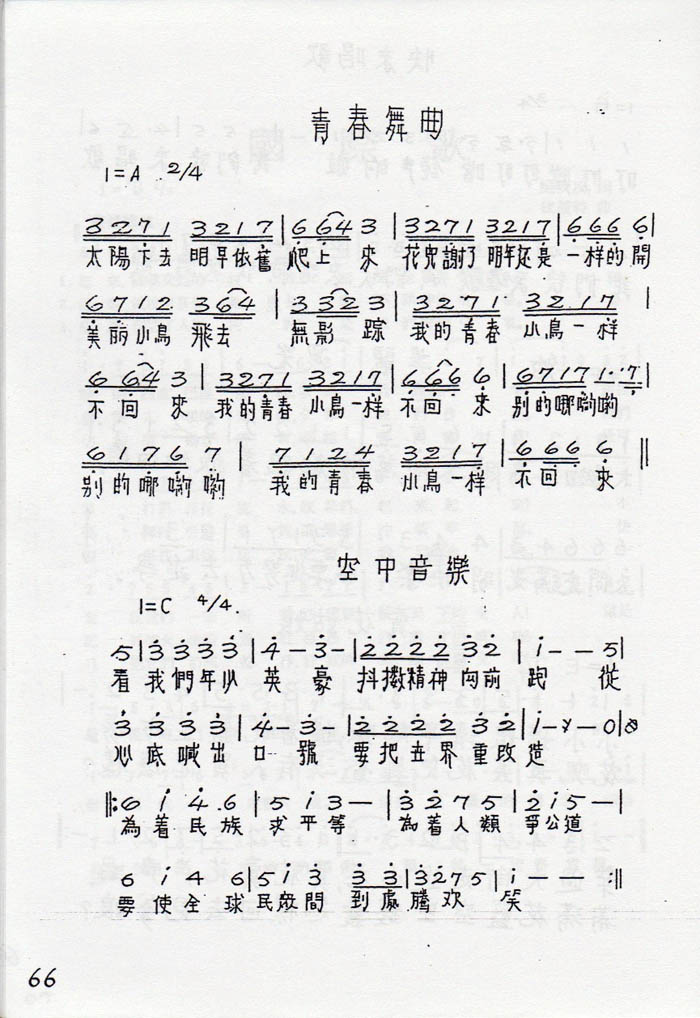 青春舞曲
1=A 2/4
3271 3217|6643|3271 3217|6666|
太陽下去 明早依舊 爬上來 花兒謝了 明年还是 一样的開
6712 364|33233|3271 32.17|
美丽小鳥 飛去 無影踪 我的青春 小鳥一样
6643|3271 3217|6666|6717 1.7|
不回來 我的青春 小鳥一样 不回來 别的哪喲喲
6176 7| 7124 3217|6666‖
别的哪喲喲 我的青春 小鳥一样 不回來
空中音樂
1=C 4/4.
5|3333|4-3-|222232|1--5|
看我們年少 英豪 抖擻精神 向前 跑 從
3333|4-3-|222232|1-×-0|
心底喊出 口號 要把世界 重改造
‖:6 1 4 .6|5 1 3-|3275|215-|
為着民族 求平等 為着人類 爭公道
6 1 4 6|513 33|3275|1--:‖
要使全球 民 間 到處騰欢 笑
66